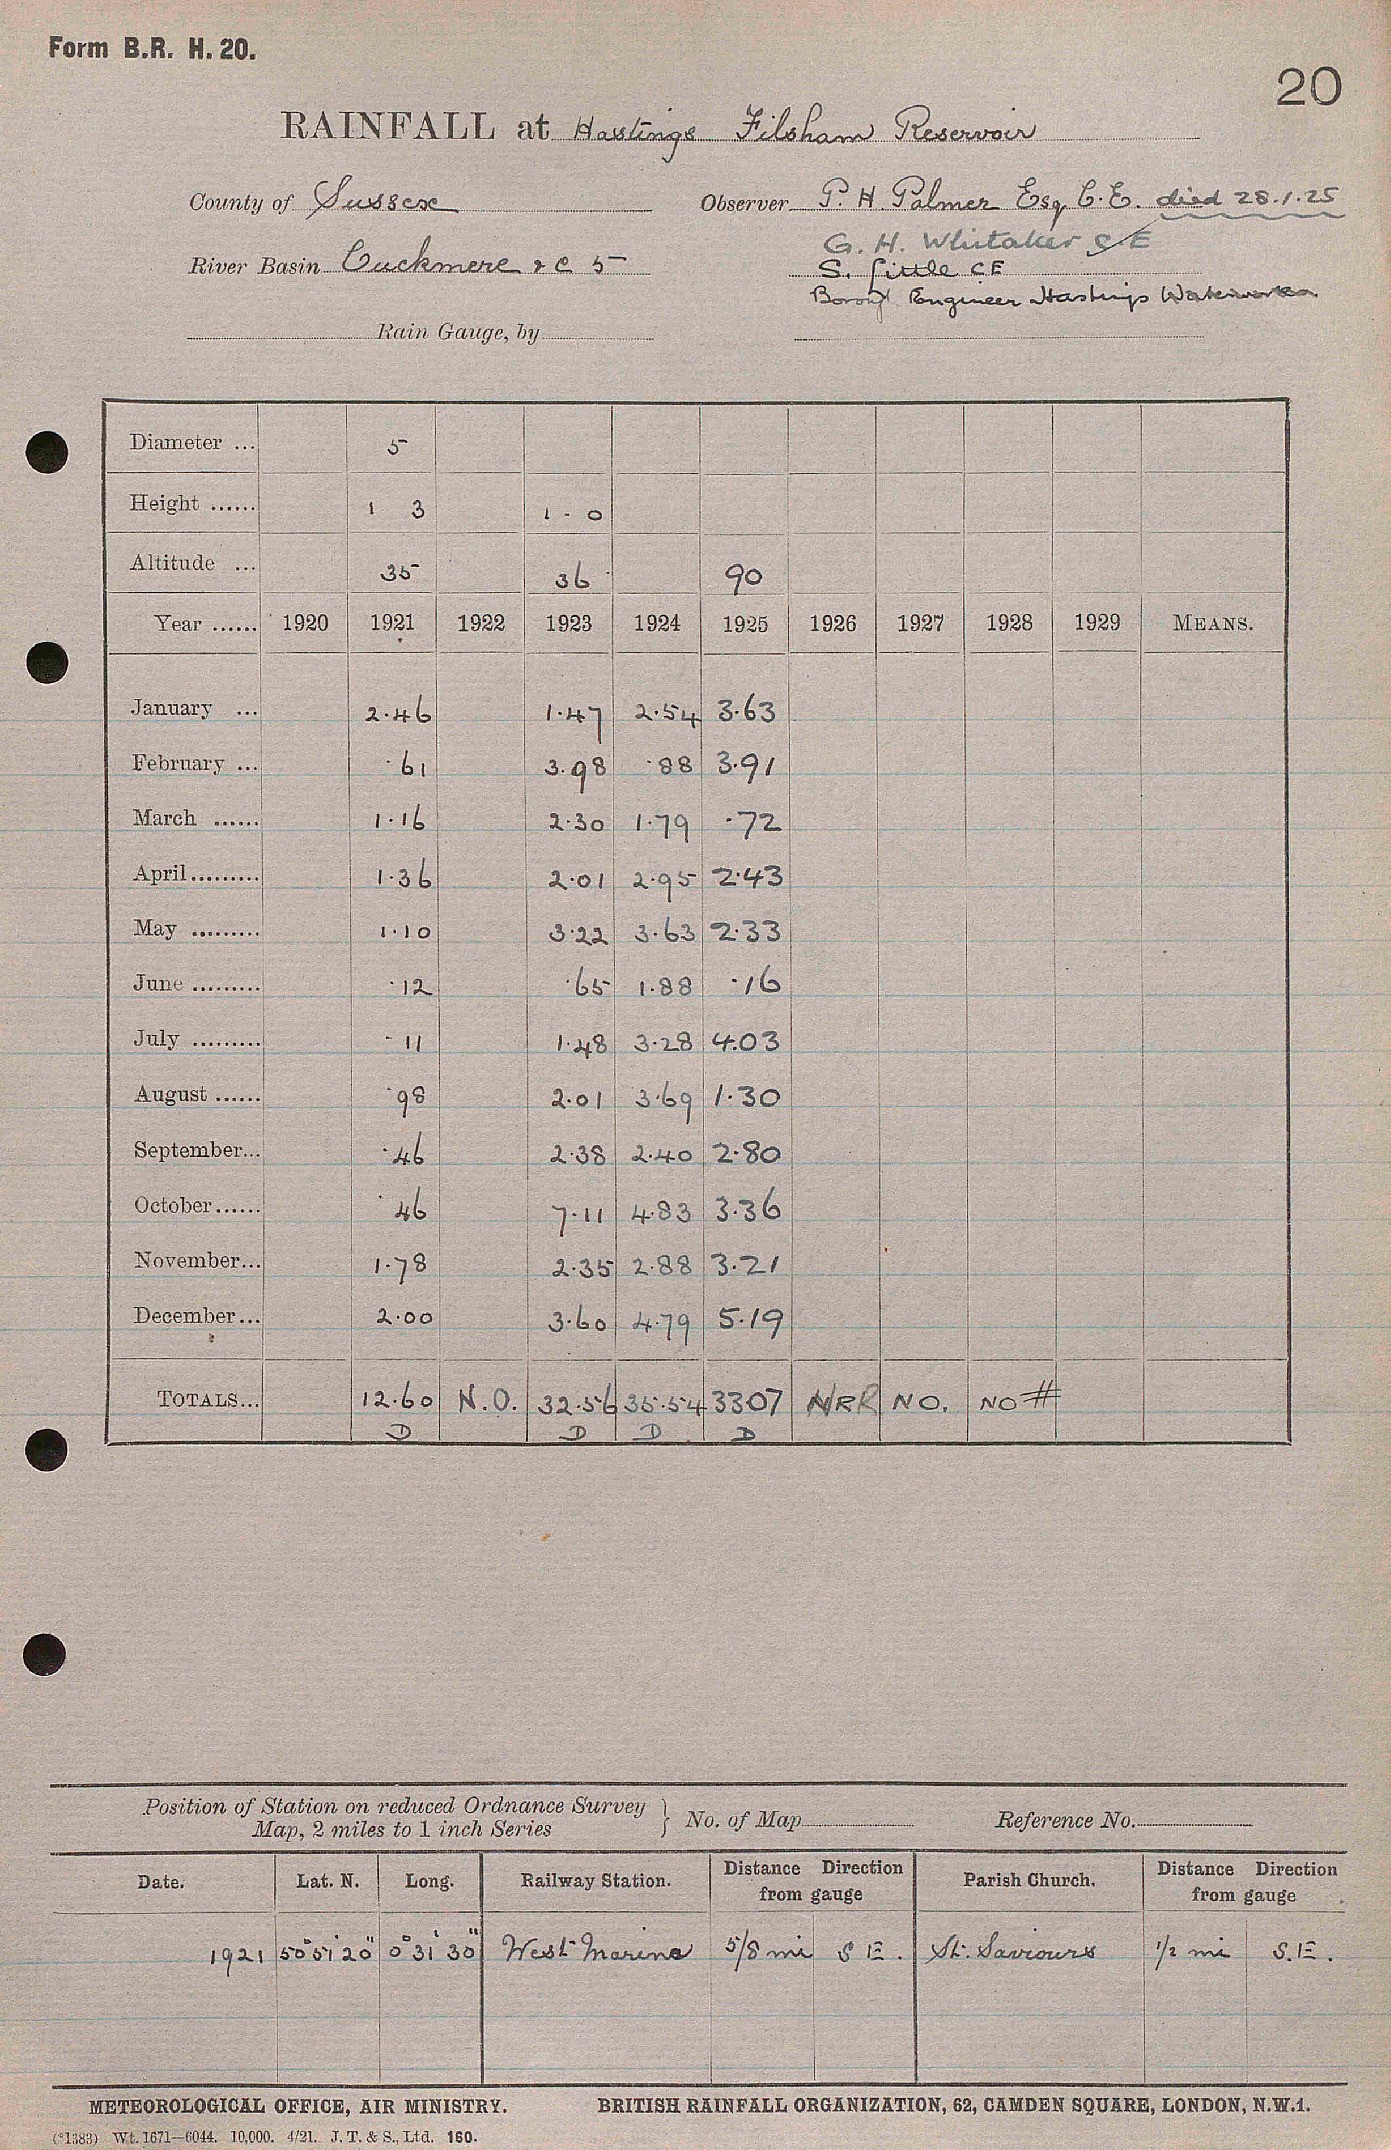 Form B.R. H. 20.
20
RAINFALL at Hastings Filsham Reservoir
County of Sussex Observer P. H. Palmer Esq C.E. died 28.1.25
G. H. Whitaker C E
River Basin Cuckmere & C 5
S. Little CE
Boro' Engineer Hastings Waterworks
Rain Gauge, by
Diameter ... 5
Height ...... 1 3 1 - 0
Altitude ... 35 36 90
Year ...... 1920 1921 1922 1923 1924 1925 1926 1927 1928 1929 MEANS.
January ... 2.46 1.47 2.54 3.63
February ... .61 3.98 .88 3.91
March ...... 1.16 2.30 1.79 .72
April......... 1.36 2.01 2.95 2.43
May ......... 1.10 3.22 3.63 2.33
June ......... .12 .65 1.88 .16
July ......... .11 1.48 3.28 4.03
August ...... .98 2.01 3.69 1.30
September... .46 2.38 2.40 2.80
October...... .46 7.11 4.83 3.36
November... 1.78 2.35 2.88 3.21
December... 2.00 3.60 4.79 5.19
TOTALS... 12.60 N.O. 32.56 35.54 3307 NRR NO. NO #
D D D D
Position of Station on reduced Ordnance Survey
Map, 2 miles to 1 inch Series } No. of Map Reference No.
Date. Lat. N. Long. Railway Station. Distance Direction from gauge Parish Church. Distance Direction from gauge
1921 50° 51' 20" 0° 31' 30" West Marina 5/8 mi S E. St. Saviours 1/2 mi S.E.
METEOROLOGICAL OFFICE, AIR MINISTRY. BRITISH RAINFALL ORGANIZATION, 62, CAMDEN SQUARE, LONDON, N.W.1.
(*1383) Wt. 1671—6044. 10,000. 4/21. J. T. & S., Ltd. 160.